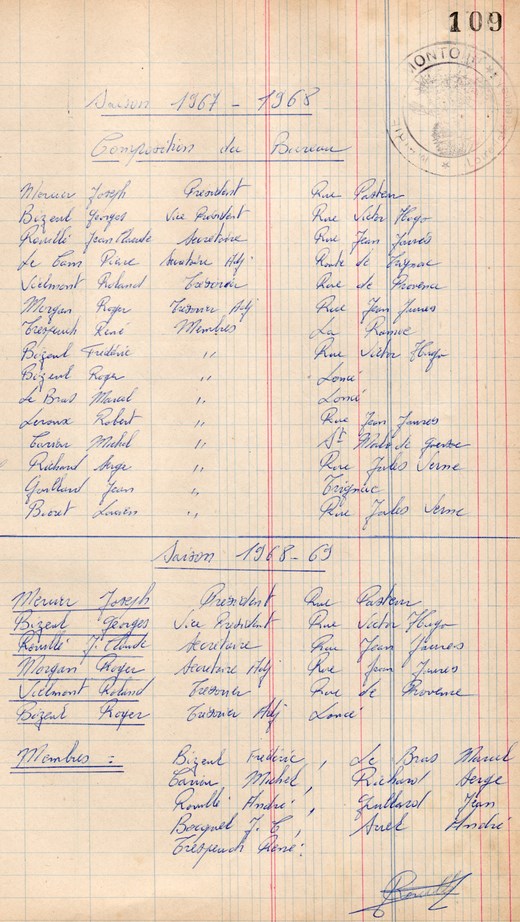 109
MONTOIR
MAIRIE
Saison 1967 - 1968
Composition du Bureau
Mercier Joseph Président Rue Pasteur
Bizeul Georges Vice Président Rue Victor Hugo
Rouillé Jean Claude Secrétaire Rue Jean Jaurès
Le Cam Pierre Secrétaire Adj Route de Trignac
Vielmont Roland Trésorier Rue de Provence
Morgan Roger Trésorier Adj Rue Jean Jaures
Trespeuch René Membres La
Bizeul Frédéric ,, Rue Victor Hugo
Bizeul Roger ,, Loncé
Le Bras Marcel ,, Loncé
Leroux Robert ,, Rue Jean Jaures
Michel ,, St Malo de Guersac
Richard Serge ,, Rue Jules Verne
Gaillard Jean ,, Trignac
Bioret Lucien ,, Rue Jules Verne
Saison 1968 - 69
Mercier Joseph Président Rue Pasteur
Bizeul Georges Vice Président Rue Victor Hugo
Rouillé J. Claude Secretaire Rue Jean Jaures
Morgan Roger Secretaire Adj Rue Jean Jaures
Vielmont Roland Tresorier Rue de Provence
Bizeul Roger Trésorier Adj Loncé
Membres = Bizeul Fréderic, Le Bras Marcel
Michel, Richard Serge
Rouillé André, Gaillard Jean
Bocquel J. C, André
Trespeuch René.